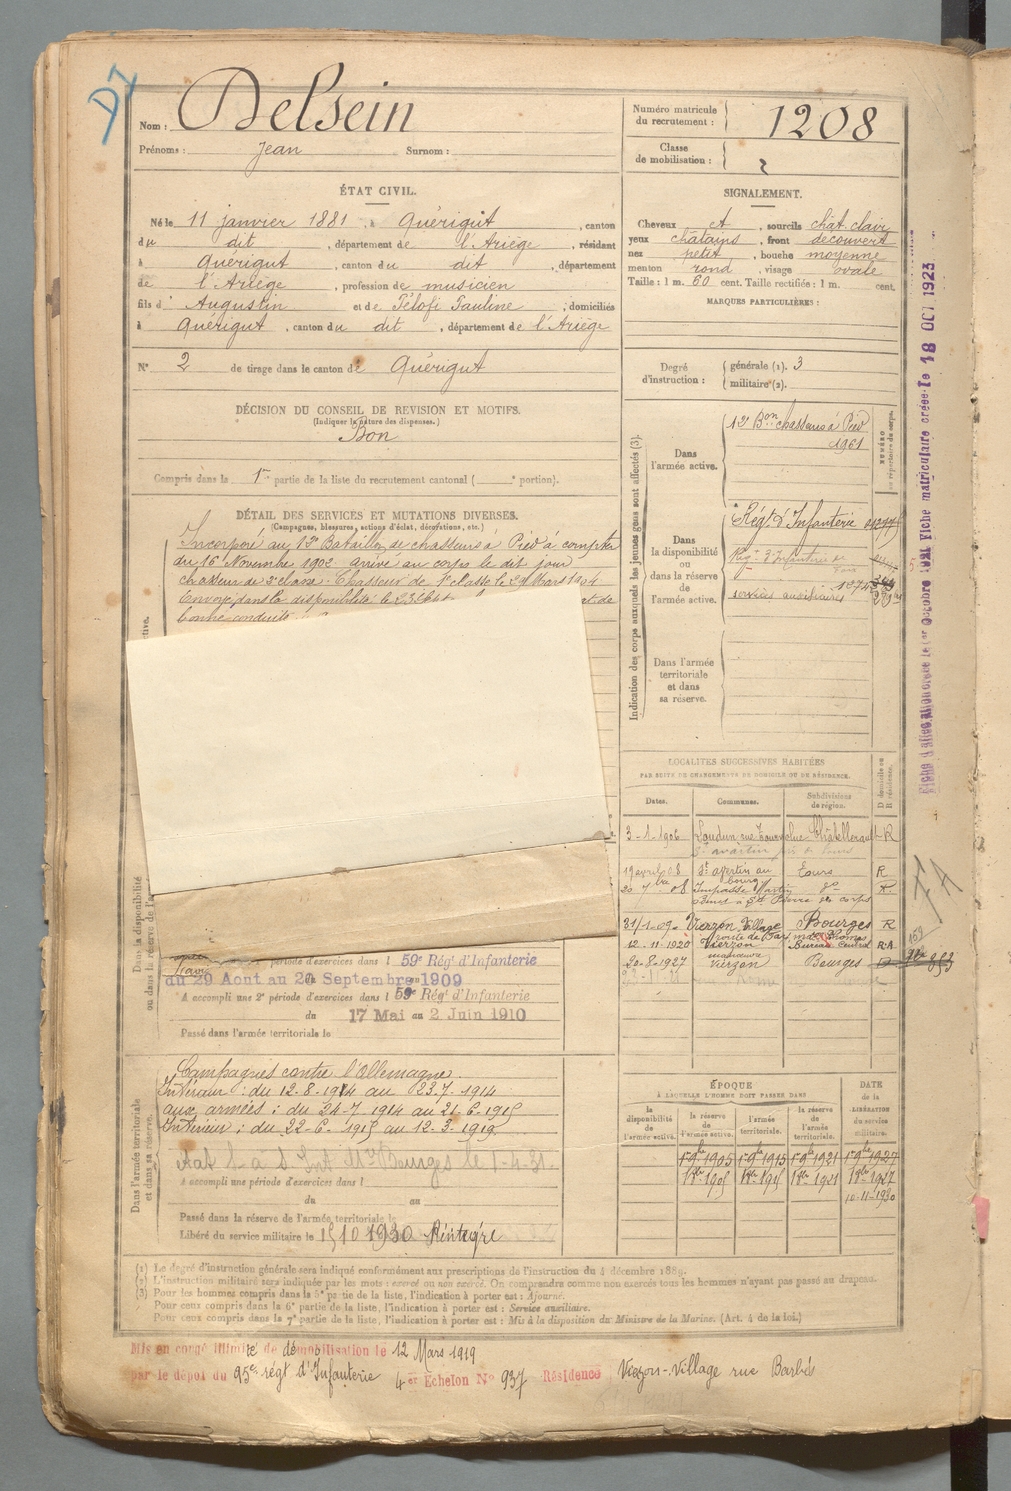 Nom : Delsein
Prénoms : Jean Surnom :
Numéro matricule du recrutement : 1208
Classe de mobilisation :
ÉTAT CIVIL.
Né le 11 janvier 1881, à Quérigut, canton
du dit, département de l'Ariège, résidant
à Quérigut, canton du dit, département
de l'Ariège, profession de musicien
fils d' Augustin et de Télofi Pauline, domiciliés
à Quérigut, canton du dit, département de l'Ariège
N° 2 de tirage dans le canton de Quérigut
SIGNALEMENT.
Cheveux et, sourcils chât. clair
yeux châtains, front découvert
nez petit, bouche moyenne
menton rond, visage ovale
Taille : 1 m. 60 cent. Taille rectifiée : 1 m. cent.
MARQUES PARTICULIÈRES :
Degré d'instruction :
générale (1). 3
militaire (2).
DÉCISION DU CONSEIL DE REVISION ET MOTIFS.
(Indiquer la nature des dispenses.)
Bon
Compris dans la 1re partie de la liste du recrutement cantonal ( e portion).
DÉTAIL DES SERVICES ET MUTATIONS DIVERSES.
(Campagnes, blessures, actions d'éclat, décorations, etc.)
Incorporé au Bataillon de chasseurs à Pied à compter
du 16 Novembre 1902. arrivé au corps le dit jour
chasseur de 2e classe. Chasseur de 1e classe le 29 Mars 1904
Envoyé dans la disponibilité le 23
bonne conduite
Indication des corps auxquels les jeunes gens sont affectés (3).
Dans l'armée active.
12 Bon chasseurs à Pied
1961
NUMÉRO au répertoire du corps.
Dans la disponibilité ou dans la réserve de l'armée active.
Régt d'Infanterie
services auxiliaires
Dans l'armée territoriale et dans sa réserve.
LOCALITÉS SUCCESSIVES HABITÉES
PAR SUITE DE CHANGEMENTS DE DOMICILE OU DE RÉSIDENCE.
Dates. Communes. Subdivisions de région. D domicile ou R résidence.
3-1-1906 Loudun Châtellerault R
19 avril 08 St avertin au bourg Tours R
20 7bre 08 Impasse Martin do R
31/1-09 Vierzon Village Bourges R
12-11-1920 Vierzon Bureau Central R.A
20-8-1927 Vierzon Bourges
période d'exercices dans l 59e Régt d'Infanterie
du 29 Aout au 20 Septembre 1909
A accompli une 2e période d'exercices dans l 59e Régt d'Infanterie
du 17 Mai au 2 Juin 1910
Passé dans l'armée territoriale le
Dans la disponibilité ou dans la réserve de l'ar
Campagnes contre l'Allemagne.
Intérieur : du 12-8-1914 au 23.7-1914
aux armées : du 24-7-1914 au 21-6-1915
Intérieur : du 22-6-1915 au 12-3-1919
Bourges le 1-4-31
A accompli une période d'exercices dans l
du au
Passé dans la réserve de l'armée territoriale le
Libéré du service militaire le 15 10 1930 Réintégré
Dans l'armée territoriale et dans sa réserve.
ÉPOQUE
À LAQUELLE L'HOMME DOIT PASSER DANS
la disponibilité de l'armée active. la réserve de l'armée active. l'armée territoriale. la réserve de l'armée territoriale.
DATE de la LIBÉRATION du service militaire.
1er 9bre 1905 1er 9bre 1915 1er 9bre 1921 1er 9bre 1927
1905 1915 1921 1927
10-11-1930
(1) Le degré d'instruction générale sera indiqué conformément aux prescriptions de l'instruction du 4 décembre 1889.
(2) L'instruction militaire sera indiquée par les mots : exercé ou non exercé. On comprendra comme non exercés tous les hommes n'ayant pas passé au drapeau.
(3) Pour les hommes compris dans la 5e partie de la liste, l'indication à porter est : Ajourné.
Pour ceux compris dans la 6e partie de la liste, l'indication à porter est : Service auxiliaire.
Pour ceux compris dans la 7e partie de la liste, l'indication à porter est : Mis à la disposition du Ministre de la Marine. (Art. 4 de la loi.)
Mis en congé illimité de démobilisation le 12 Mars 1919
par le dépot du 95e régt d'Infanterie 4er Echelon N° 937 Résidence Vierzon-Village rue Barbès
Fiche d'allocation créée le 1er Octobre 1921 Fiche matriculaire créée le 18 OCT 1923